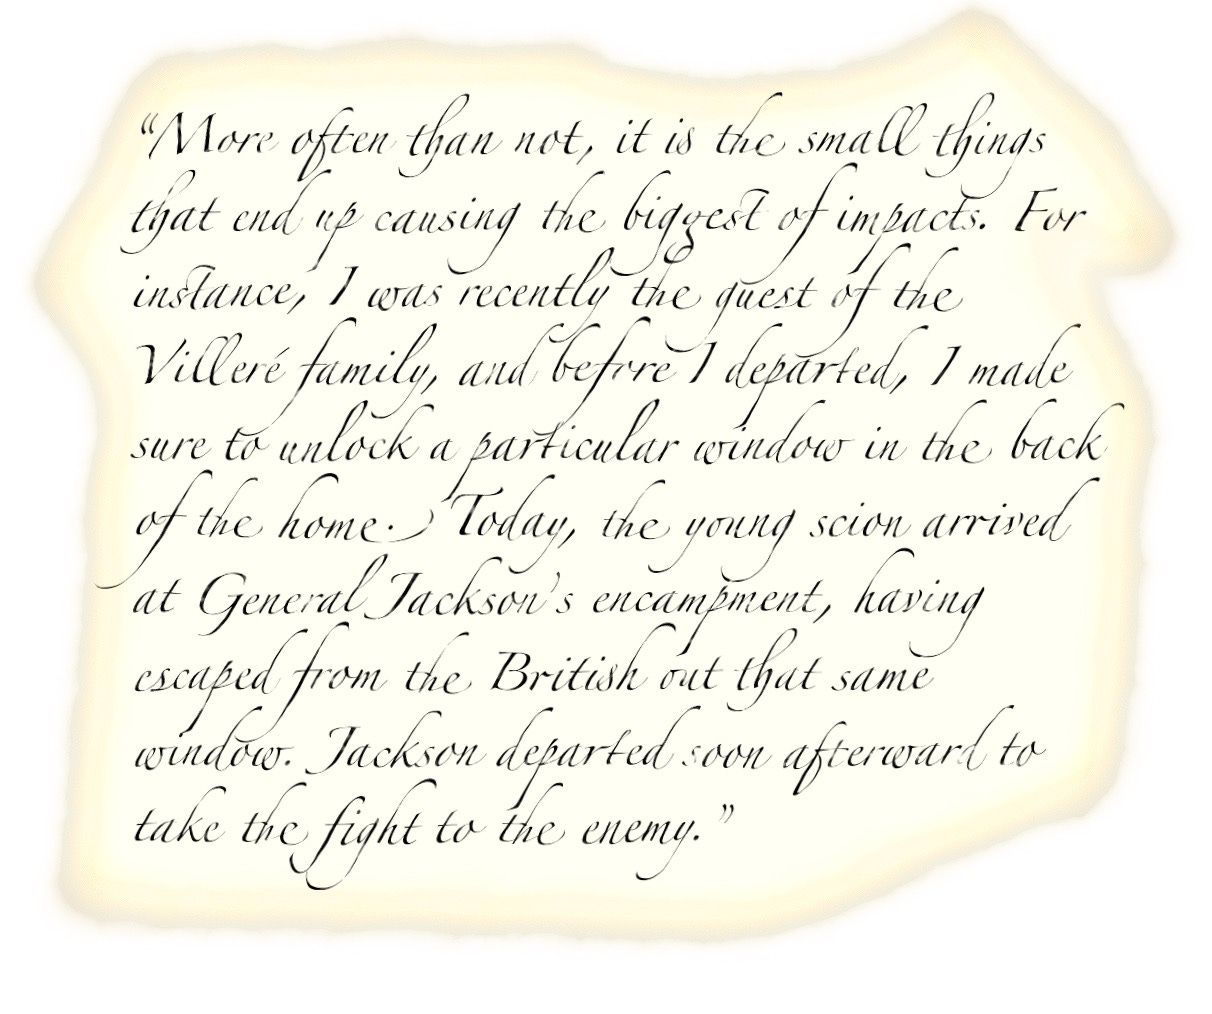 “More often than not, it is the small things
that end up causing the biggest of impacts. For
instance, I was recently the guest of the
Villeré family, and before I departed, I made
sure to unlock a particular window in the back
of the home. Today, the young scion arrived
at General Jackson's encampment, having
escaped from the British out that same
window. Jackson departed soon afterward to
take the fight to the enemy.”